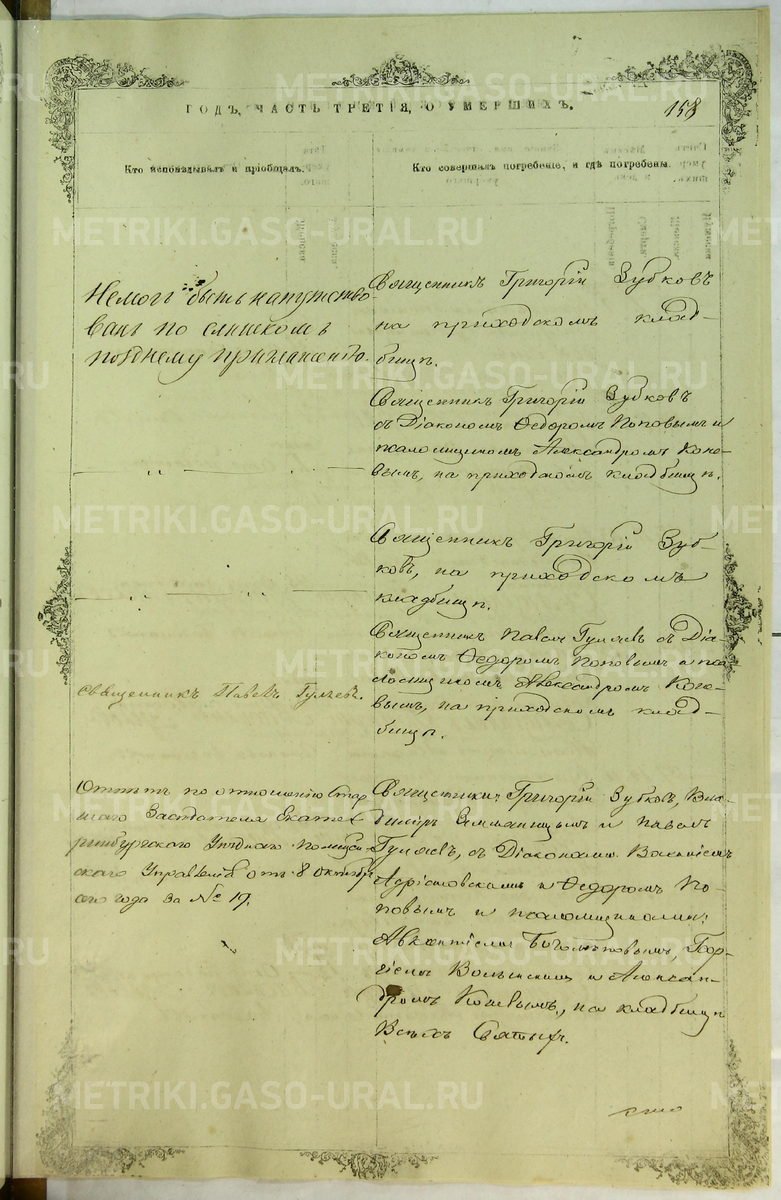 ГОДЪ, ЧАСТЬ ТРЕТІЯ, О УМЕРШИХЪ.
158
Кто исповѣдывалъ и пріобщалъ.
Кто совершалъ погребеніе, и гдѣ погребены.
Немогъ быть напутство-
ванъ по слишкомъ
позднему приглашенію.
Священникъ Григорій Зубковъ
на приходскомъ клад-
бищѣ.
Священникъ Григорій Зубковъ
съ Діакономъ Ѳедоромъ Поповымъ и
псаломщикомъ Александромъ Коне-
вымъ, на приходскомъ кладбищѣ.
Священникъ Григорій Зуб-
ковъ, на приходскомъ
кладбищѣ.
Священникъ Павелъ Гуляевъ.
Священникъ Павелъ Гуляевъ съ Діа-
кономъ Ѳедоромъ Поповымъ и пса-
ломщикомъ Александромъ Коне-
вымъ, на приходскомъ клад-
бищѣ.
Отпѣтъ по отношенію Стар
шаго Засѣдателя Екате
ринбургскаго Уѣзднаго Полицей
скаго Управленія отъ 8 Октября
сего года за № 19.
Священники: Григорій Зубковъ, Вла-
диміръ и Павелъ
Гуляевъ, съ Діаконами
и Ѳедоромъ По-
повымъ и псаломщиками:
Геор-
гіемъ Волынскимъ и Алексан-
дромъ Коневымъ, на кладбищѣ
Всѣхъ Святыхъ.
METRIKI.GASO-URAL.RU